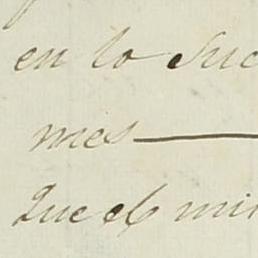 en lo Suc
mes
Que el mi